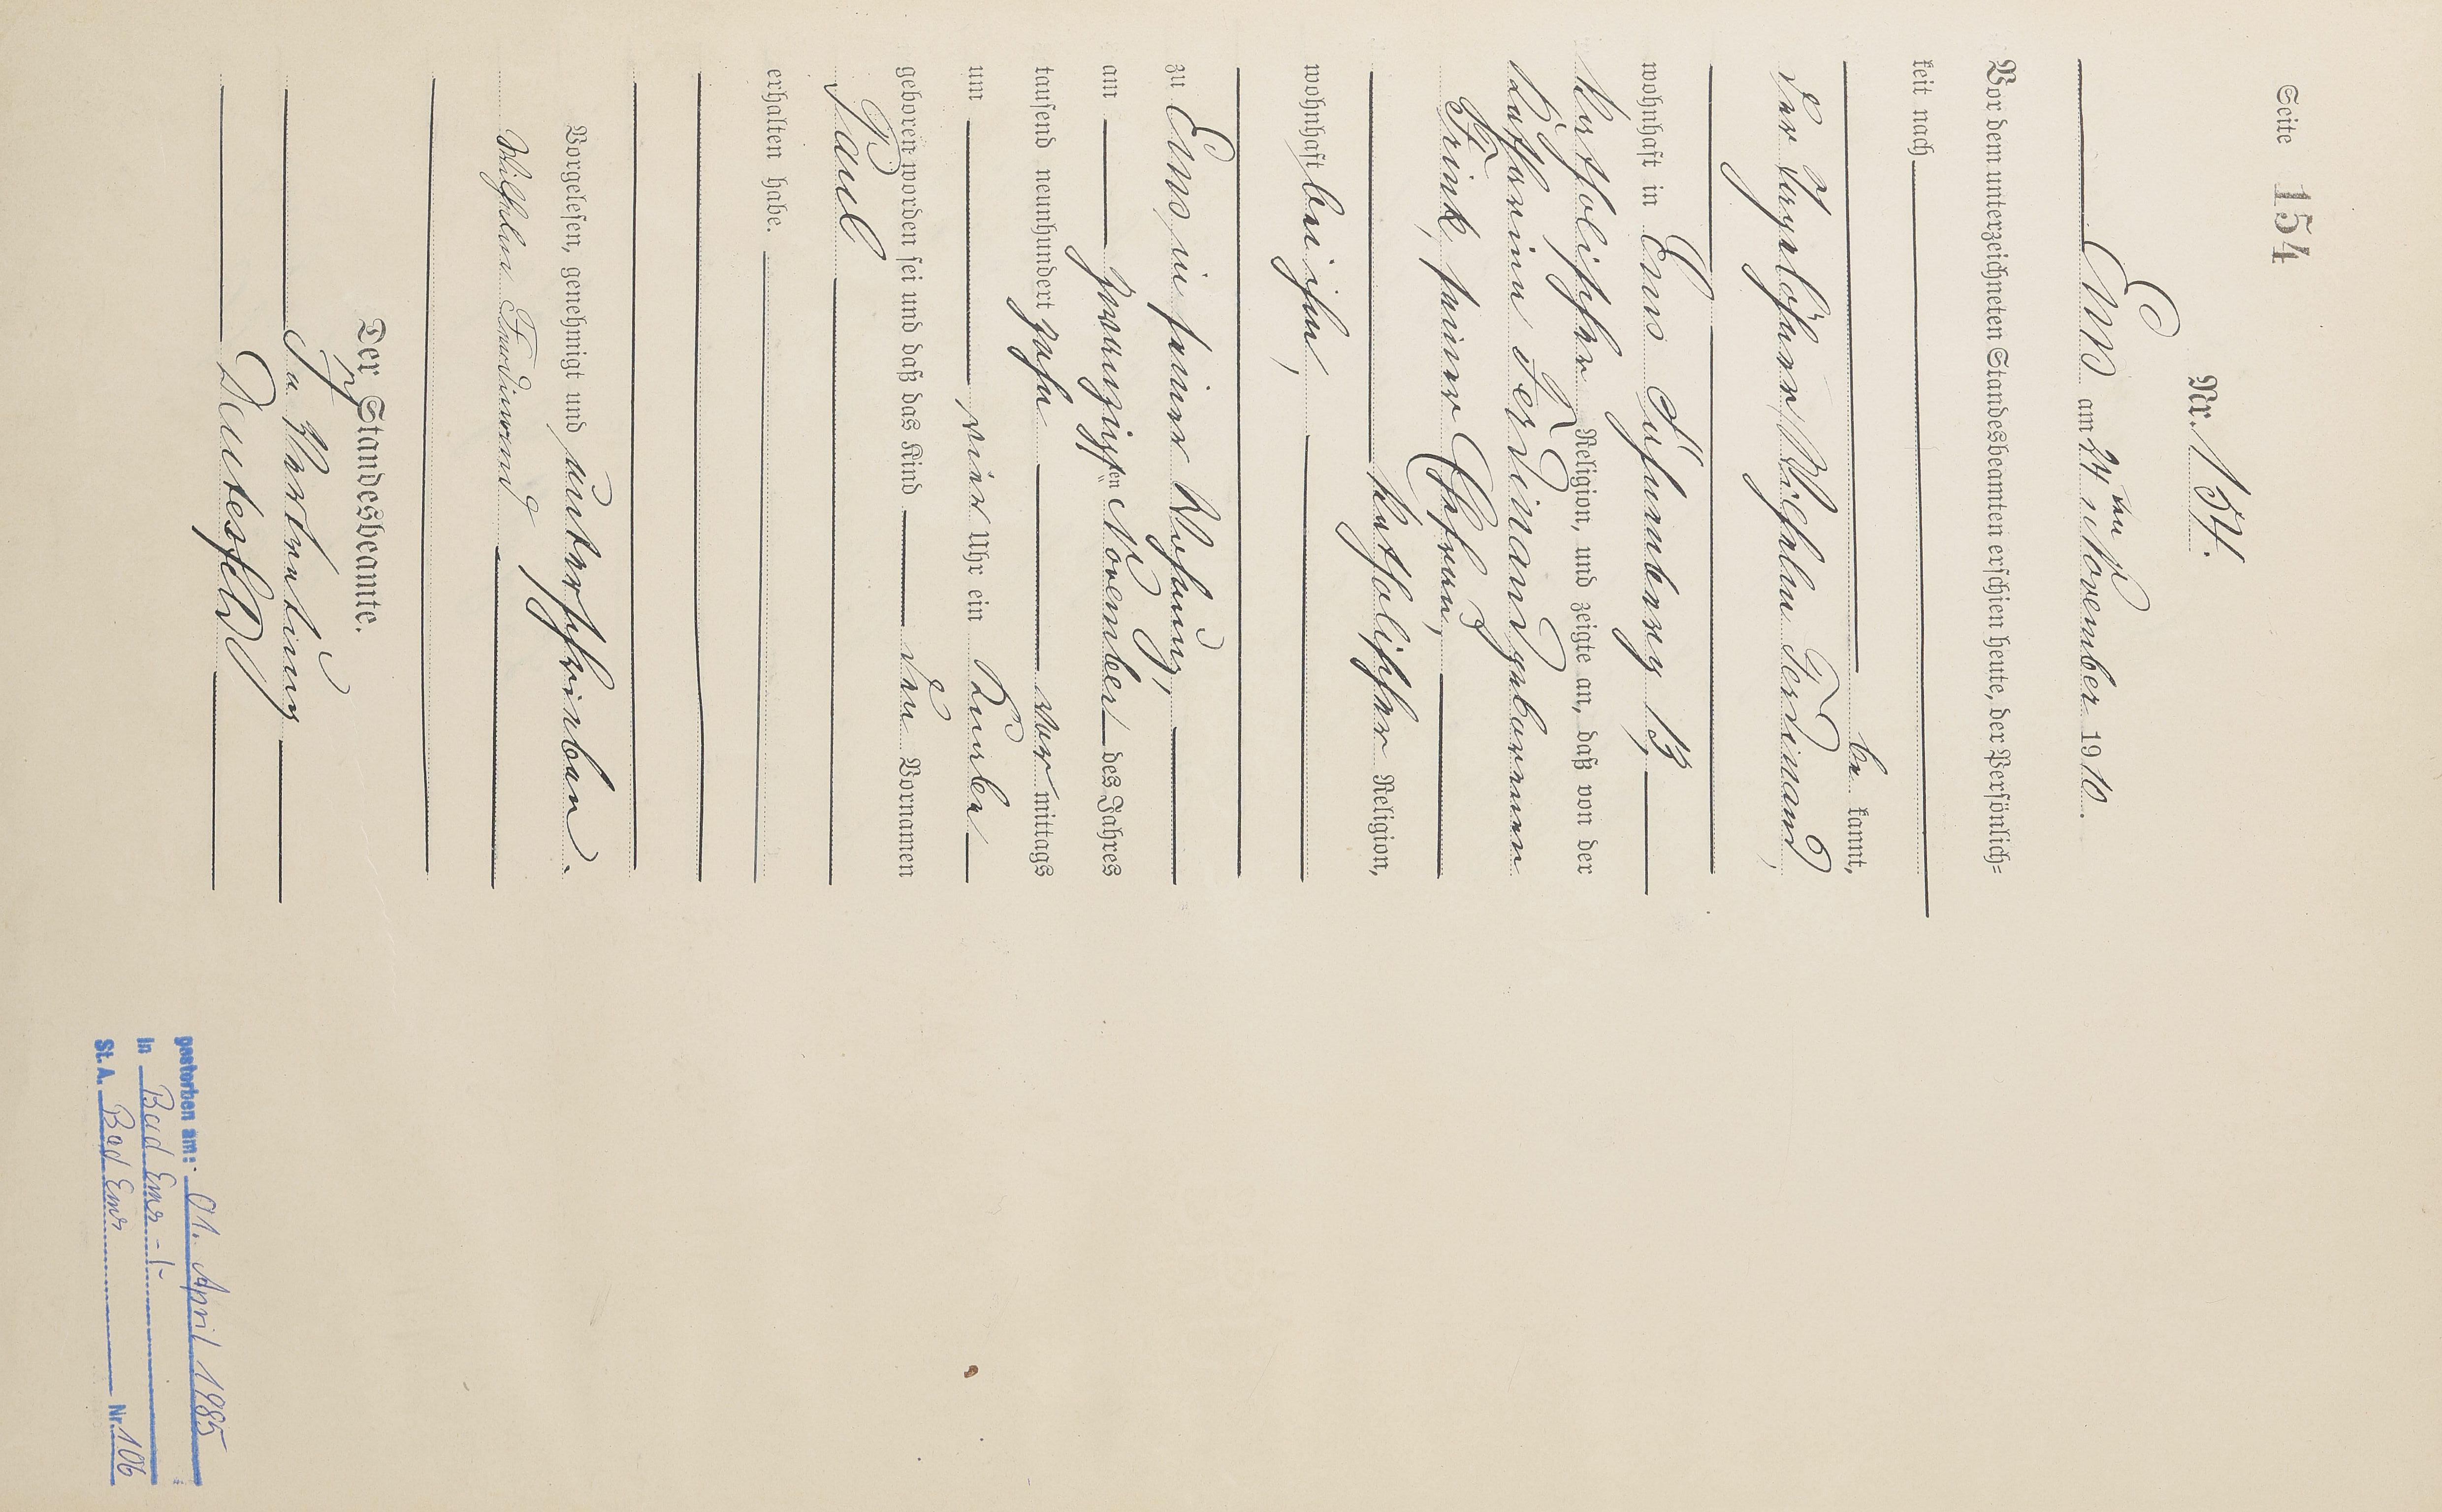 Seite 154
Nr. 154.
Ems am 24ten November 1910.
Vor dem unterzeichneten Standesbeamten erschien heute, der Persönlich=
keit nach
be kannt,
der Tagelöhner Wilhelm Ferdinand,
wohnhaft in Ems 13,
katholischer Religion, und zeigte an, daß von der
Katharina Ferdinand geborenen
seiner Ehefrau,
katholischer Religion,
wohnhaft bei ihm,
zu Ems in seiner Wohnung,
am zwanzigsten November des Jahres
tausend neunhundert zehn vor mittags
um vier Uhr ein Knabe
geboren worden sei und daß das Kind den Vornamen
Paul
erhalten habe.
Vorgelesen, genehmigt und unterschrieben.
Wilhelm Ferdinand
Der Standesbeamte.
In Vertretung
Deutesfeld
gestorben am: 01. April 1985
in Bad Ems
St. A. Bad Ems Nr. 106